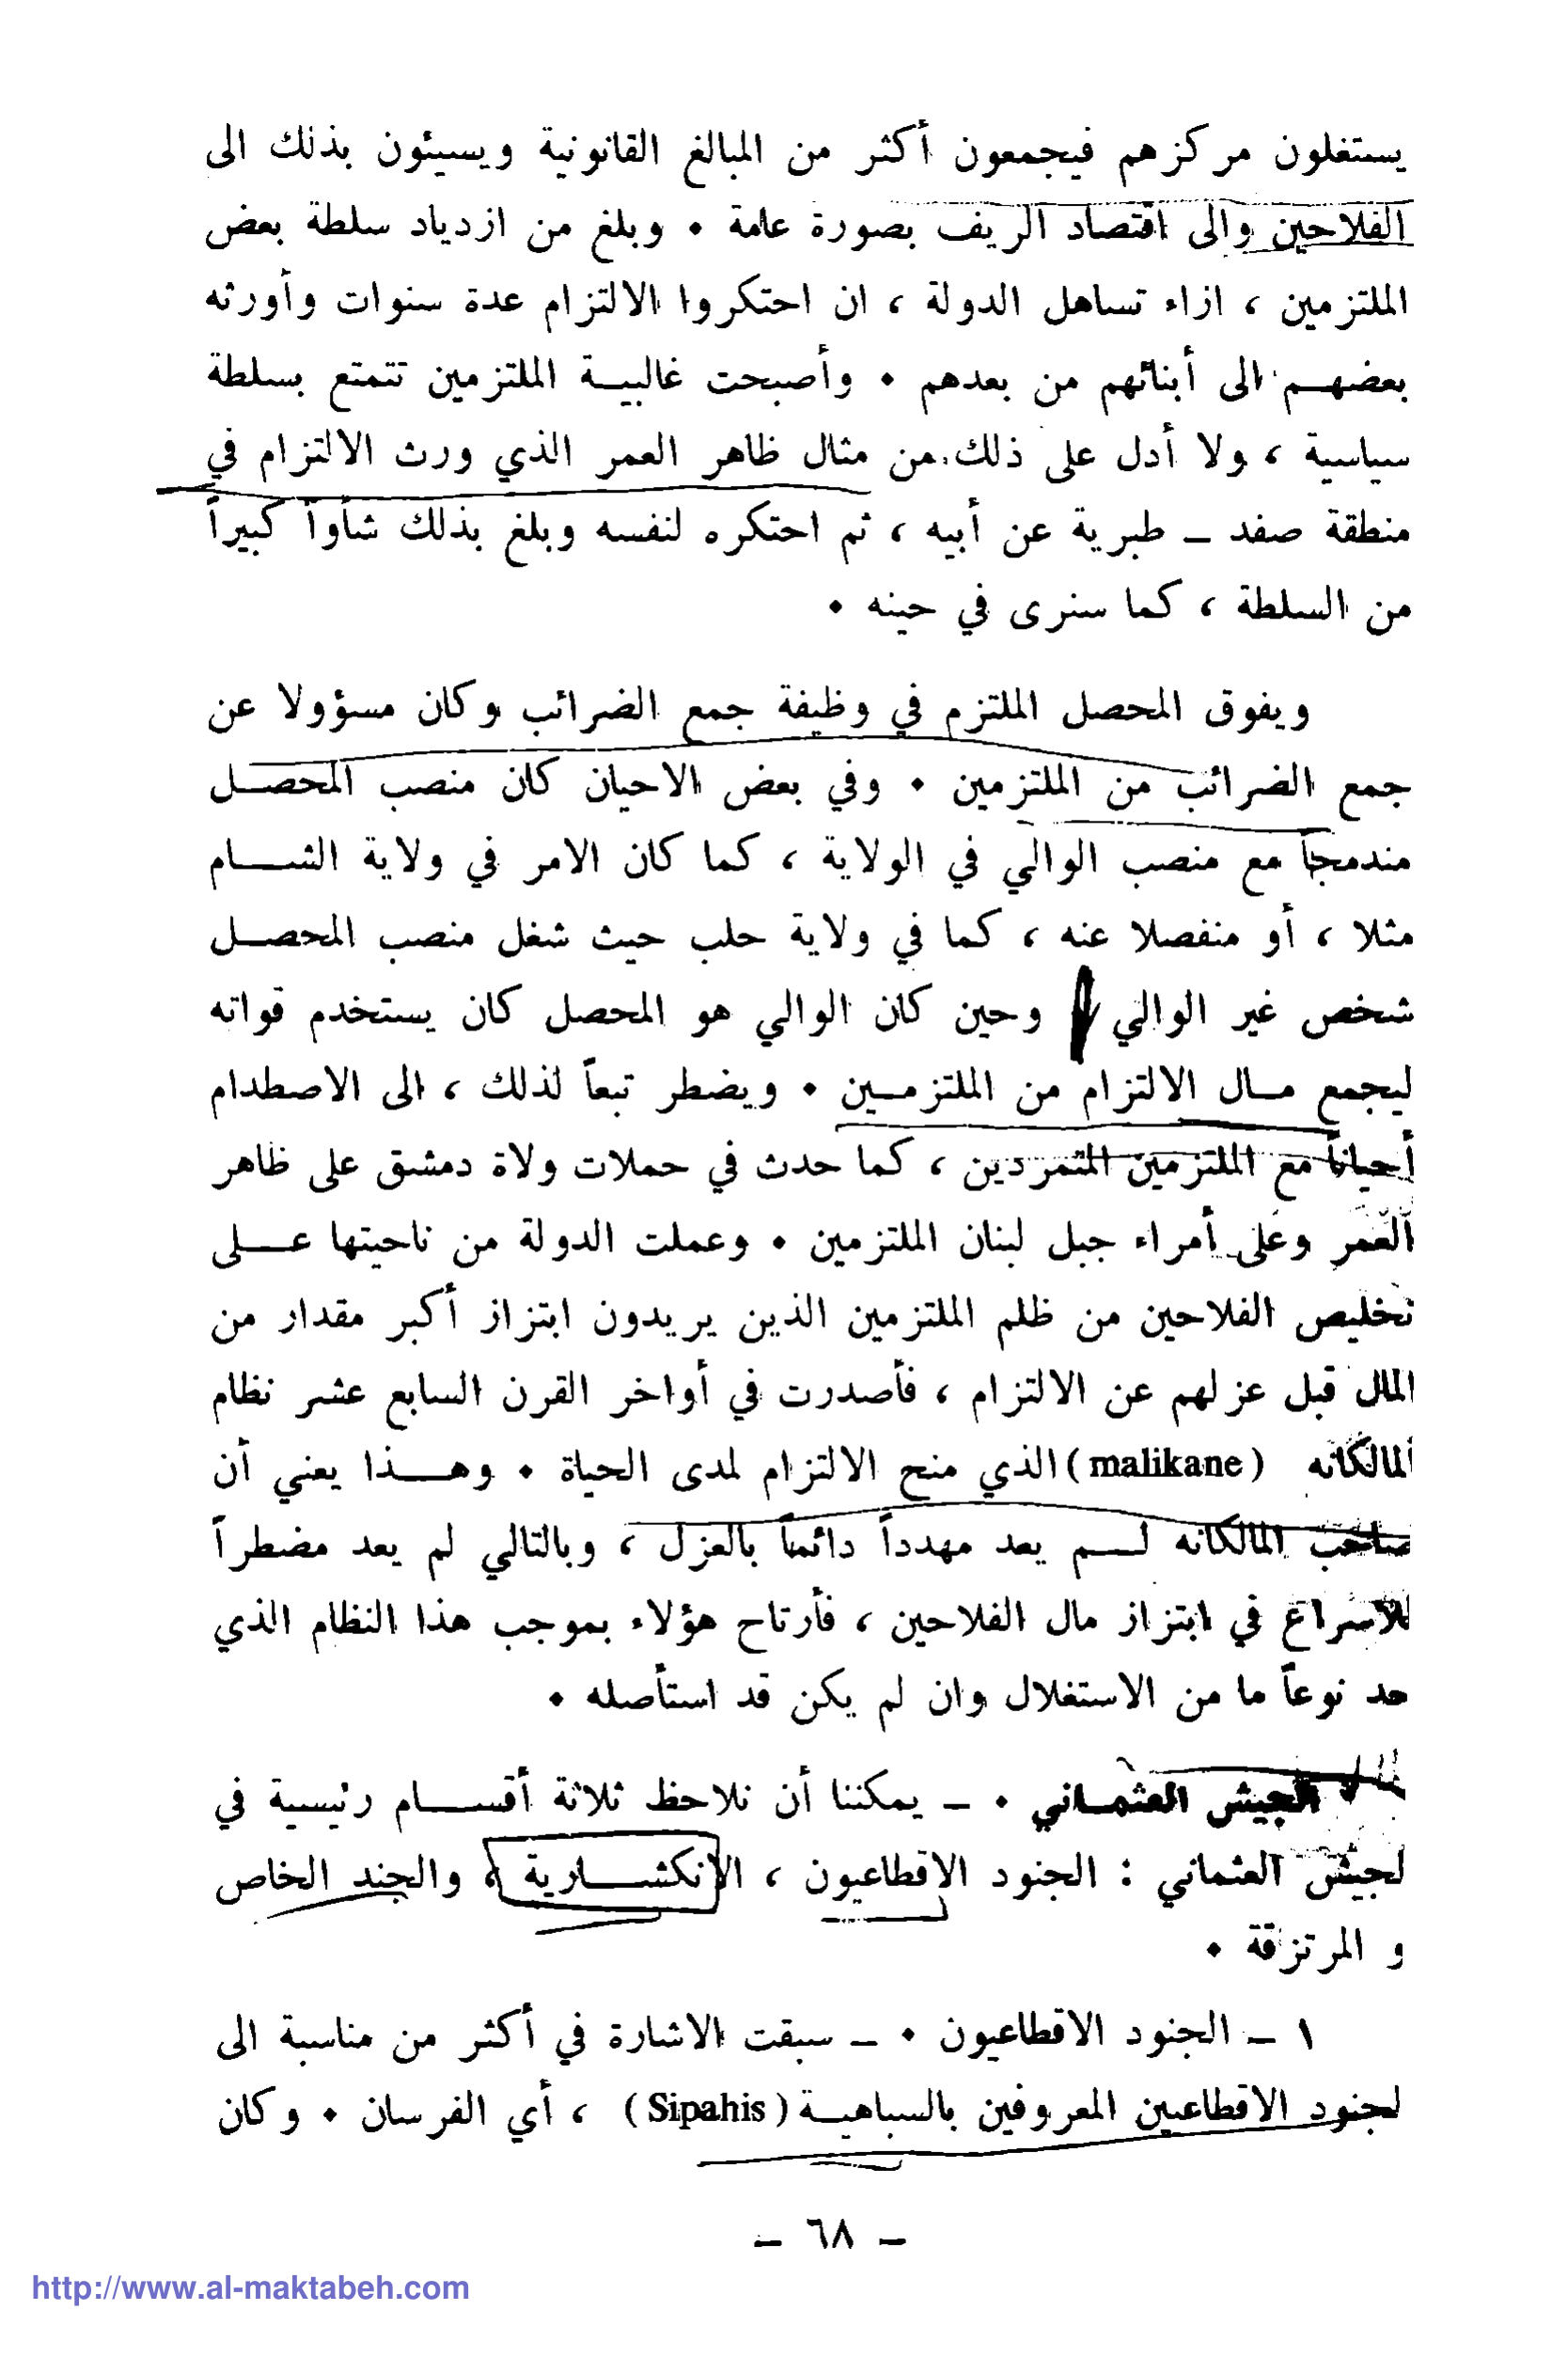 يستغلون مركزهم فيجمعون أكثر من المبالغ القانونية ويسيئون بذلك الى
الفلاحين والى اقتصاد الريف بصورة عامة ٠ وبلغ من ازدياد سلطة بعض
الملتزمين ، ازاء تساهل الدولة ، ان احتكروا الالتزام عدة سنوات وأورثه
بعضهم الى أبنائهم من بعدهم ٠ وأصبحت غالبية الملتزمين تتمتع بسلطة
سياسية ، ولا أدل على ذلك من مثال ظاهر العمر الذي ورث الالتزام في
منطقة صفد ـ طبرية عن أبيه ، ثم احتكره لنفسه وبلغ بذلك شأواً كبيراً
من السلطة ، كما سنرى في حينه ٠
ويفوق المحصل الملتزم في وظيفة جمع الضرائب وكان مسؤولا عن
جمع الضرائب من الملتزمين ٠ وفي بعض الاحيان كان منصب المحصل
مندمجاً مع منصب الوالي في الولاية ، كما كان الامر في ولاية الشام
مثلا ، أو منفصلا عنه ، كما في ولاية حلب حيث شغل منصب المحصل
شخص غير الوالي وحين كان الوالي هو المحصل كان يستخدم قواته
ليجمع مال الالتزام من الملتزمين ٠ ويضطر تبعاً لذلك ، الى الاصطدام
أحياناً مع الملتزمين المتمردين ، كما حدث في حملات ولاة دمشق على ظاهر
العمر وعلى أمراء جبل لبنان الملتزمين ٠ وعملت الدولة من ناحيتها على
تخليص الفلاحين من ظلم الملتزمين الذين يريدون ابتزاز أكبر مقدار من
المال قبل عزلهم عن الالتزام ، فأصدرت في أواخر القرن السابع عشر نظام
المالكانه (malikane) الذي منح الالتزام لمدى الحياة ٠ وهذا يعني أن
صاحب المالكانه لم يعد مهدداً دائماً بالعزل ، وبالتالي لم يعد مضطراً
للاسراع في ابتزاز مال الفلاحين ، فأرتاح هؤلاء بموجب هذا النظام الذي
حد نوعاً ما من الاستغلال وان لم يكن قد استأصله ٠
الجيش العثماني ٠ ـ يمكننا أن نلاحظ ثلاثة أقسام رئيسية في
لجيش العثماني : الجنود الاقطاعيون ، الانكشارية ، والجند الخاص
و المرتزقة ٠
١ ـ الجنود الاقطاعيون ٠ ـ سبقت الاشارة في أكثر من مناسبة الى
لجنود الاقطاعيين المعروفين بالسباهية (Sipahis) ، أي الفرسان ٠ وكان
ـ ٦٨ ـ
http://www.al-maktabeh.com